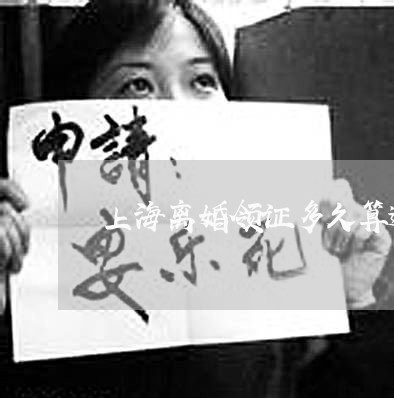 申請：
上海离婚领证多久算
安乐死